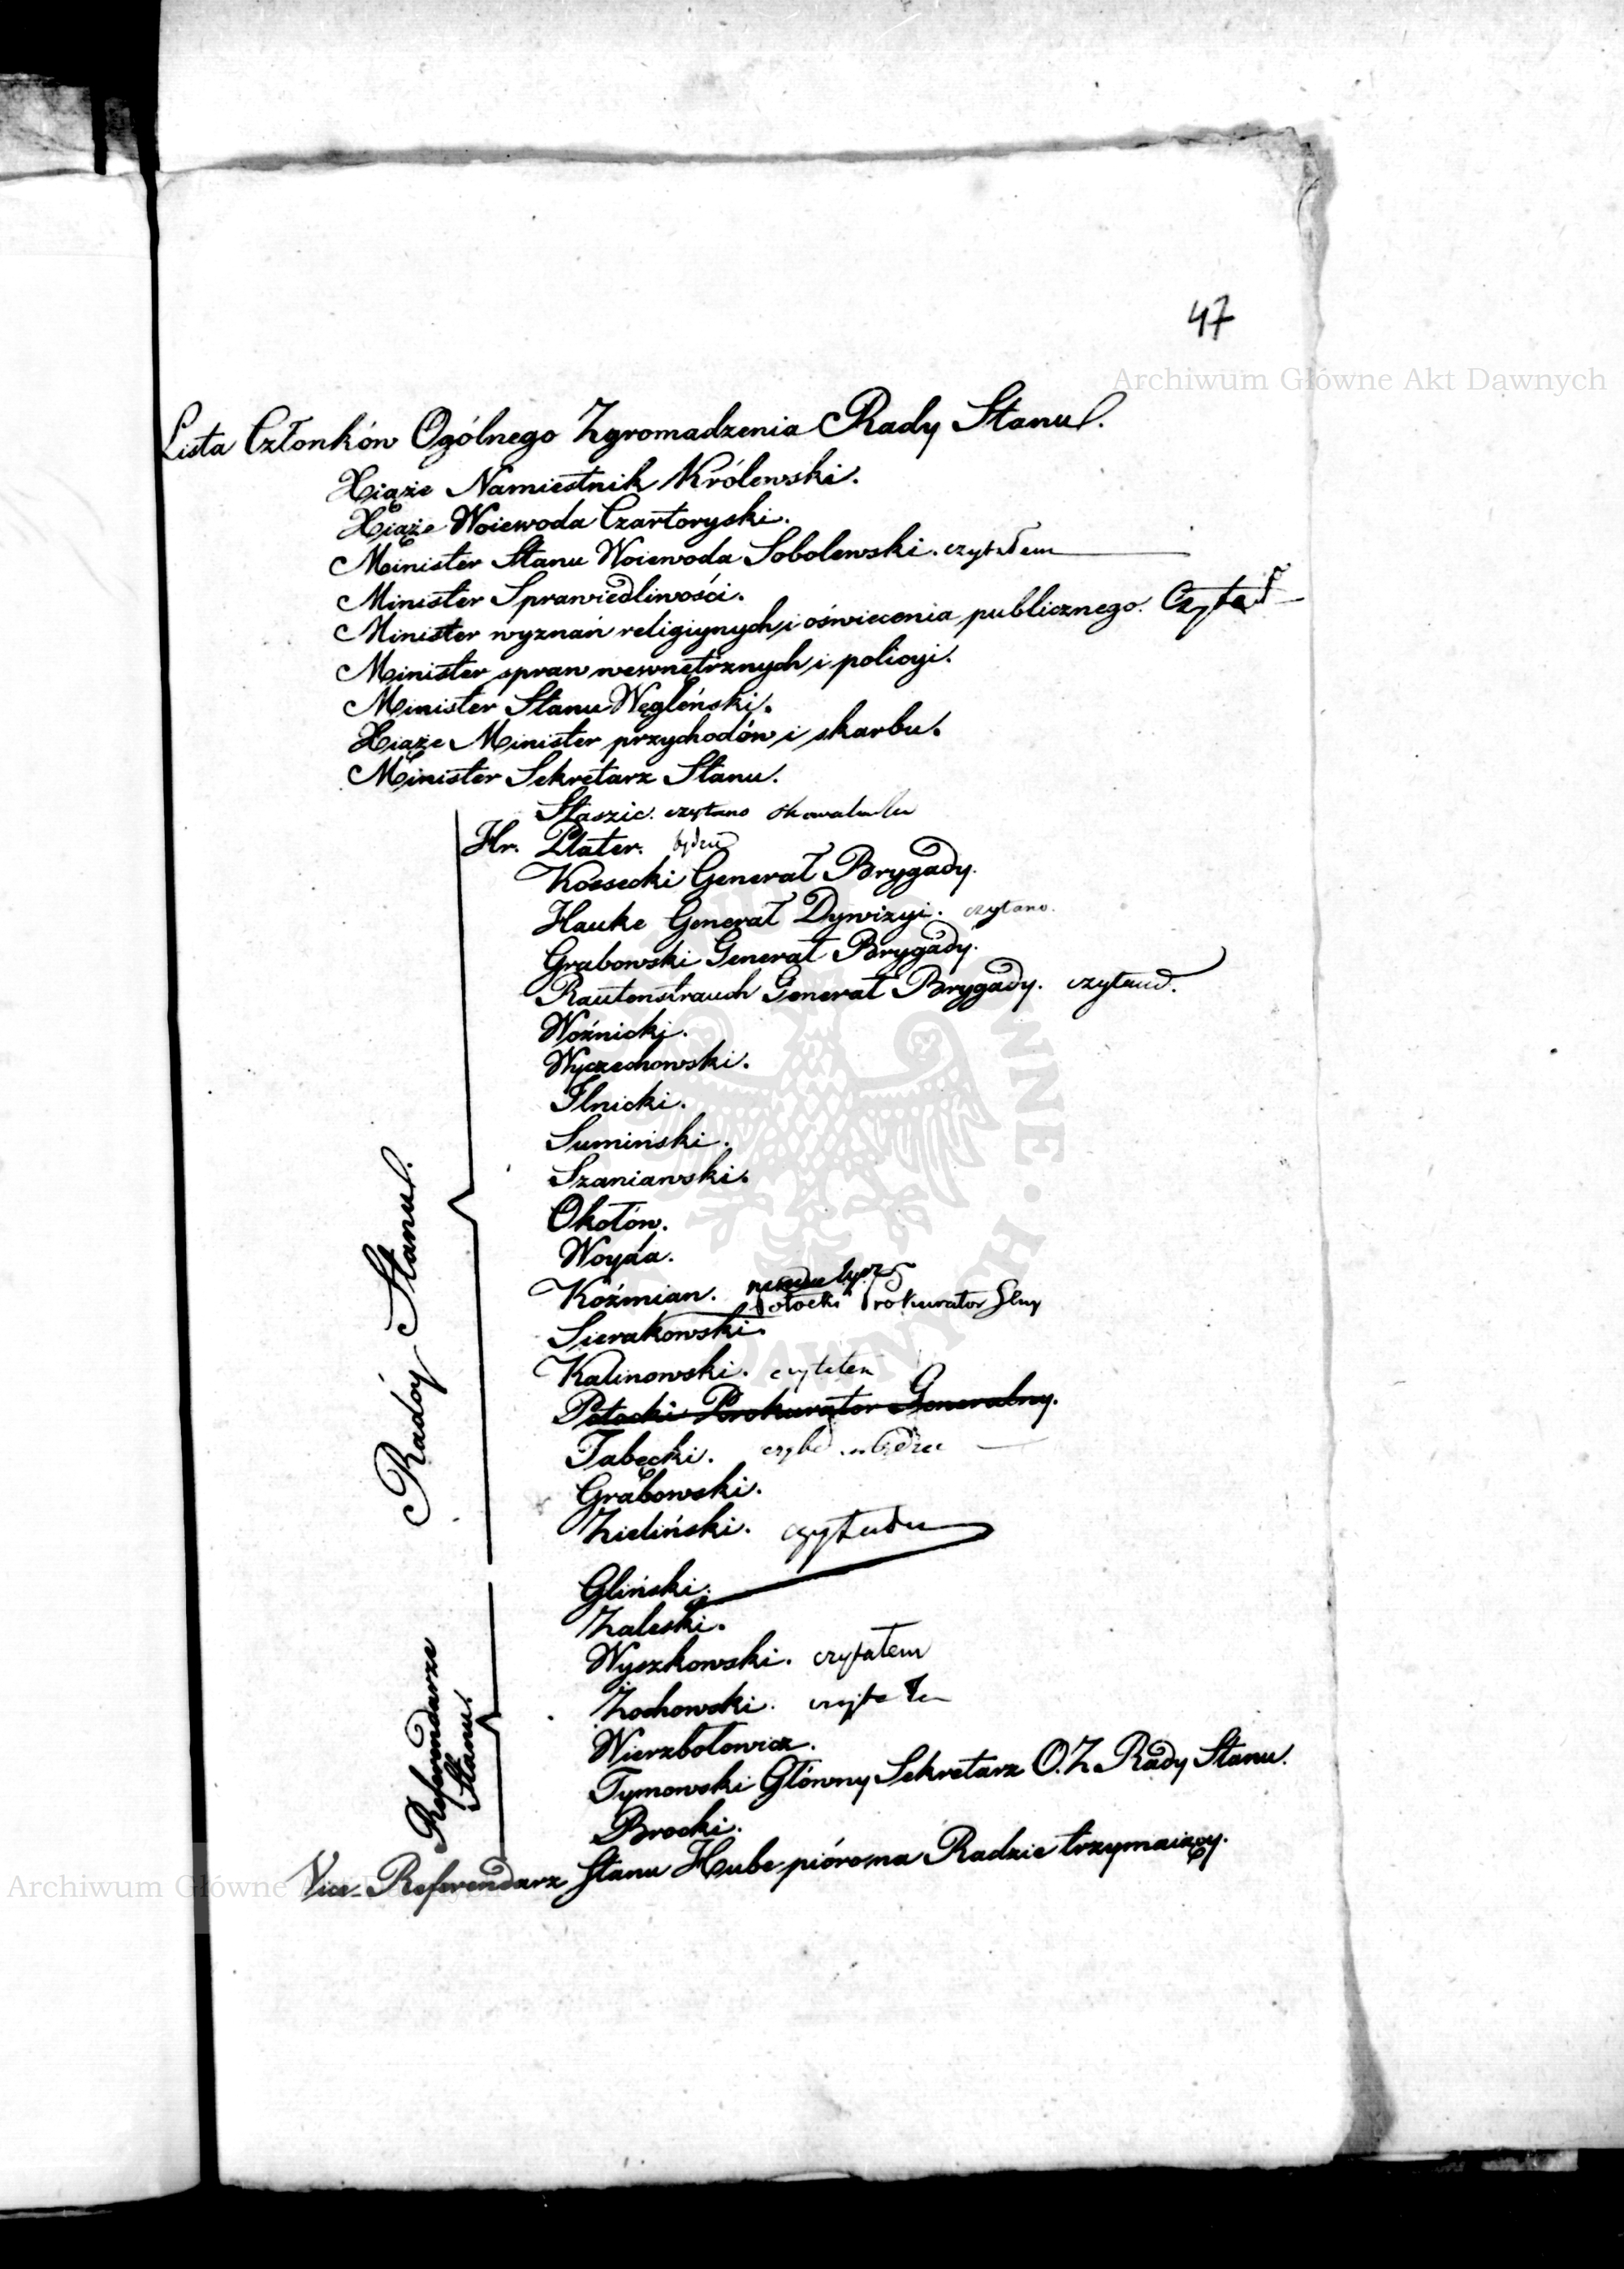 47
Archiwum Główne Akt Dawnych
Lista Członków Ogólnego Zgromadzenia Rady Stanu.
Xiąże Namiestnik Królewski.
Xiąże Woiewoda Czartoryski.
Minister Stanu Woiewoda Sobolewski. czytałem
Minister Sprawiedliwości.
Minister wyznań religiynych i oświecenia publicznego. Czytał
Minister spraw wewnętrznych i policyi.
Minister Stanu Węgleński.
Xiąże Minister przychodów i skarbu.
Minister Sekretarz Stanu.
Radcy Stanu.
Staszic. czytano
Hr. Plater.
Kossecki Generał Brygady.
Hauke Generał Dywizyi. czytano.
Grabowski Generał Brygady.
Rautenstrauch Generał Brygady.
Woźnicki.
Wyczechowski.
Ilnicki.
Sumiński.
Szaniawski.
Okołów.
Woyda.
Koźmian.
Potocki Prokurator
Sierakowski.
Kalinowski. czytałem
Potocki Prokurator Generalny.
Tabęcki.
Grabowski.
Zieliński.
Referendarze
Stanu.
Gliński.
Zaleski.
Wyszkowski. czytałem
Żochowski. czytałem
Wierzbołowicz.
Tymowski Główny Sekretarz O. Z. Rady Stanu.
Brocki.
Vice-Referendarz Stanu Hube pióro na Radzie trzymaiący.
Archiwum Główne